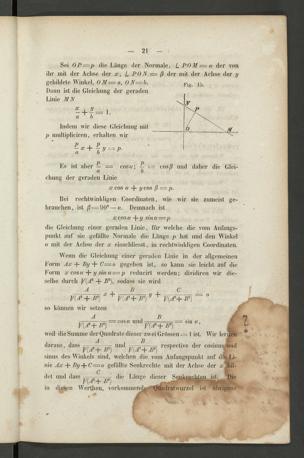 — 21 —
Sei OP=p die Länge der Normale, ∠ POM=α der von
ihr mit der Achse der x, ∠ PON=β der mit der Achse der y
gebildete Winkel, OM=a, ON=b.
Fig. 15.
Dann ist die Gleichung der geraden
Linie MN
x/a + y/b = 1.
N
P
O
M
Indem wir diese Gleichung mit
p multipliciren, erhalten wir
p/a x + p/b y = p.
Es ist aber p/a = cos α; p/b = cos β und daher die Glei-
chung der geraden Linie
x cos α + y cos β = p.
Bei rechtwinkligen Coordinaten, wie wir sie zumeist ge-
brauchen, ist β=90°−α. Demnach ist
x cos α + y sin α = p
die Gleichung einer geraden Linie, für welche die vom Anfangs-
punkt auf sie gefällte Normale die Länge p hat und den Winkel
α mit der Achse der x einschliesst, in rechtwinkligen Coordinaten.
Wenn die Gleichung einer geraden Linie in der allgemeinen
Form Ax + By + C=o gegeben ist, so kann sie leicht auf die
Form x cos α + y sin α = p reducirt werden; dividiren wir die-
selbe durch √(A² + B²), sodass sie wird
A/√(A² + B²) x + B/√(A² + B²) y + C/√(A² + B²) = o
so können wir setzen
A/√(A² + B²) = cos α und B/√(A² + B²) = sin α,
weil die Summe der Quadrate dieser zwei Grössen = 1 ist. Wir
daraus, dass A/√(A² + B²) und B/√(A² + B²) respective der cosinus und
sinus des Winkels sind, welchen die vom Anfangspunkt auf die Li-
nie Ax + By + C=o gefällte Senkrechte mit der Achse der x bil-
det und dass C/√(A² + B²) die Länge dieser Senkrechten ist. Die
in diesen Werthen vorkommende Quadratwurzel ist übrigens